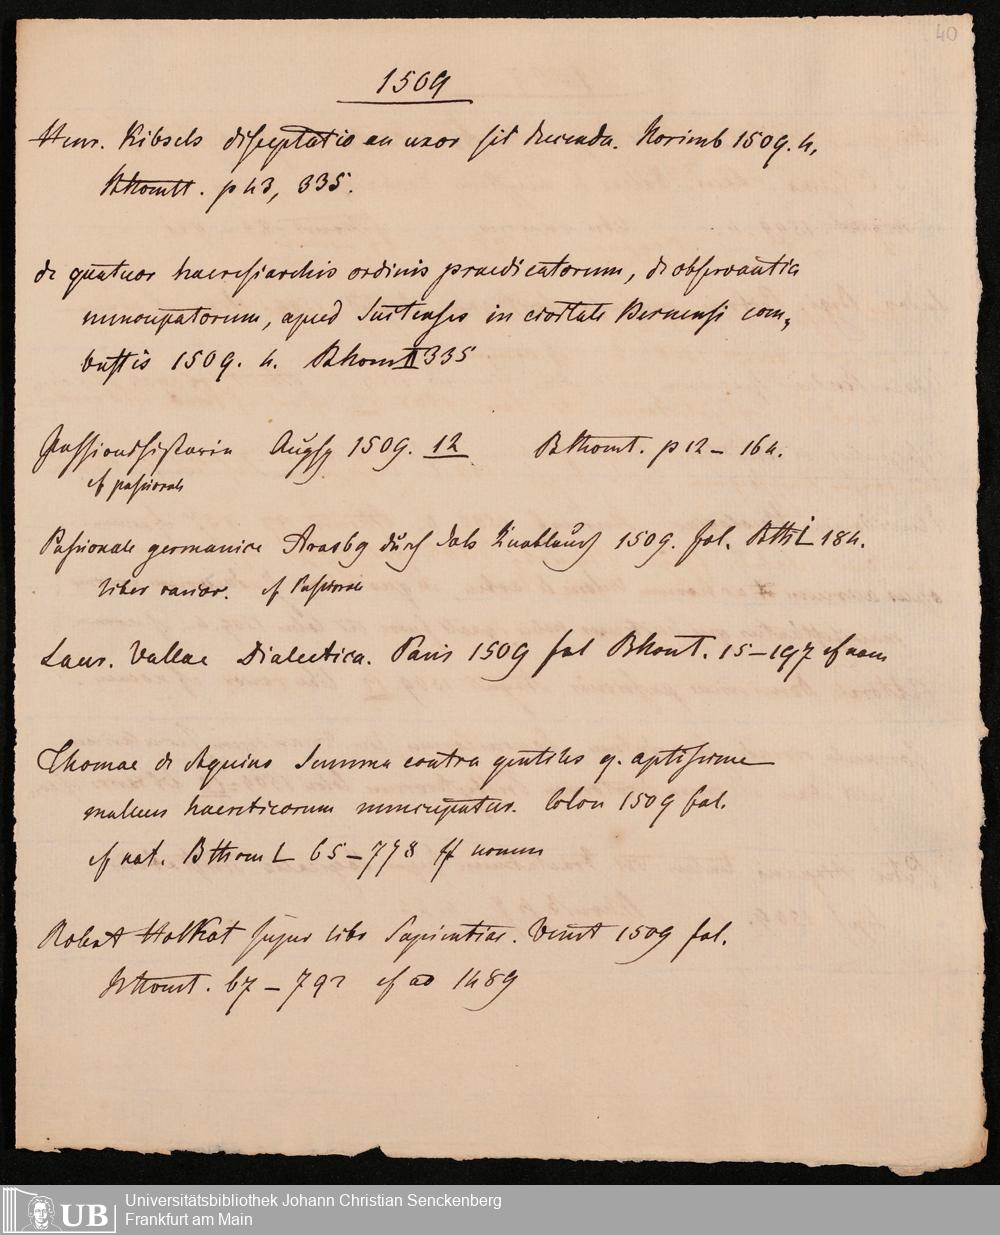 40
1509
Henr. Bebels disceptatio an uxor sit ducenda. Norimb 1509. 4.
Bthomt. p 43, 335.
de quatuor haeresiarchis ordinis praedicatorum, de observantia
nuncupatorum, apud Suitenses in civitate Bernensi com,
bustis 1509. 4. Bthom II 335
Passionshistoria Augsp 1509. 12 Bthomt. p 12 – 164.
cf passionale
Passionale germanice Strasbg durch Knoblauch 1509. fol. 184.
liber rarior. cf Passionale
Laur. Vallae Dialectica. Paris 1509 fol Bthomt. 15 – 197 cf nam
Thomae de Aquino Summa contra gentiles q. aptissime
malleus haereticorum nuncupatur. Colon 1509 fol.
cf nat. Bthom I. 65 – 778
Robert Holkot super libr Sapientiae. Venet 1509 fol.
Bthomt. 67 – 792 cf ad 1489
UB
Universitätsbibliothek Johann Christian Senckenberg
Frankfurt am Main